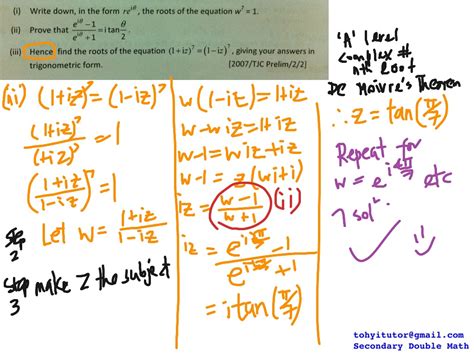 (i) Write down, in the form re^{iθ}, the roots of the equation w⁷ = 1.
(ii) Prove that (e^{iθ} − 1)/(e^{iθ} + 1) = i tan θ/2.
(iii) Hence find the roots of the equation (1+iz)⁷ = (1−iz)⁷, giving your answers in
trigonometric form. [2007/TJC Prelim/2/2]
'A' Level
Complex #
nth Root
De Moivre's Theorem
(iii) (1+iz)⁷ = (1−iz)⁷
(1+iz)⁷/(1+iz)⁷ = 1
((1+iz)/(1−iz))⁷ = 1
Step 2
Let w = (1+iz)/(1−iz)
Step 3 make z the subject
w(1−iz) = 1+iz
w−wiz = 1+iz
w−1 = wiz+iz
w−1 = z(wi+i)
iz = (w−1)/(w+1) (ii)
iz = (e^{i2π/7} −1)/(e^{i2π/7} +1)
= i tan(π/7)
∴ z = tan(π/7)
Repeat for
w = e^{i4π/7} etc
7 sol^n
tohyitutor@gmail.com
Secondary Double Math